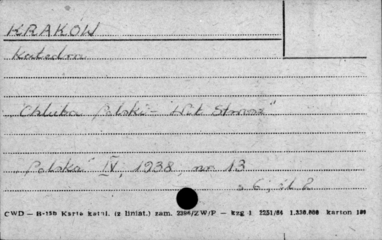 KRAKÓW
Katedra
"Chluba Polski – Wit Stwosz"
"Polska" IV, 1938, nr 13
s 6, il. 2
CWD — B-15b Karta katal. (z liniat.) zam. 2396/ZW/P — kzg 1 2251/64 1.330.000 karton 100